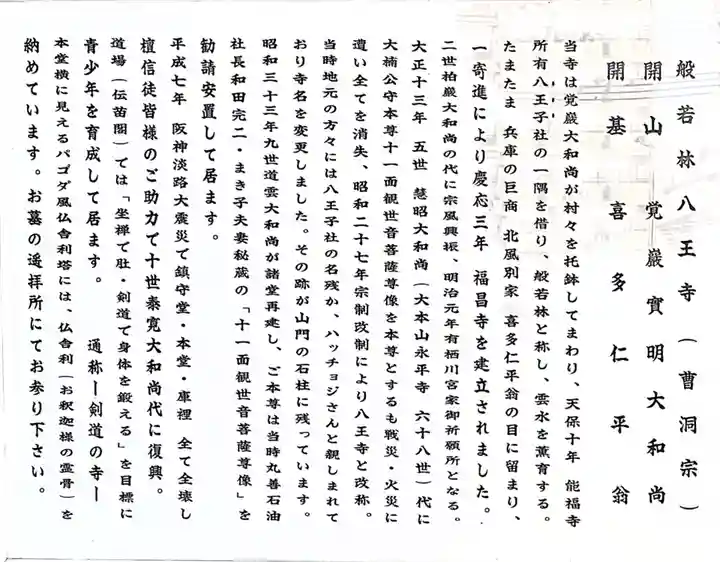 般若林八王寺(曹洞宗)
開山 覚巌實明大和尚
開基 喜多仁平翁
当寺は覚巌大和尚が村々を托鉢してまわり、天保十年 能福寺
所有八王子社の一隅を借り、般若林と称し、雲水を薫育する。
たまたま 兵庫の巨商 北風別家 喜多仁平翁の目に留まり、
一寄進により慶応三年 福昌寺を建立されました。
二世柏巌大和尚の代に宗風興振、明治元年有栖川宮家御祈願所となる。
大正十三年 五世 慧昭大和尚(大本山永平寺 六十八世)代に
大楠公守本尊十一面観世音菩薩尊像を本尊とするも戦災・火災に
遭い全てを消失、昭和二十七年宗制改制により八王寺と改称。
当時地元の方々には八王子社の名残か、ハッチョジさんと親しまれて
おり寺名を変更しました。その跡が山門の石柱に残っています。
昭和三十三年九世道雲大和尚が諸堂再建し、ご本尊は当時丸善石油
社長和田完二・まき子夫妻秘蔵の「十一面観世音菩薩尊像」を
勧請安置して居ます。
平成七年 阪神淡路大震災で鎮守堂・本堂・庫裡 全て全壊し
檀信徒皆様のご助力で十世泰寛大和尚代に復興。
道場(伝苗閣)ては「坐禅で肚・剣道で身体を鍛える」を目標に
青少年を育成して居ます。 通称ー剣道の寺ー
本堂横に見えるパゴダ風仏舎利塔には、仏舎利(お釈迦様の霊骨)を
納めています。お墓の遥拝所にてお参り下さい。